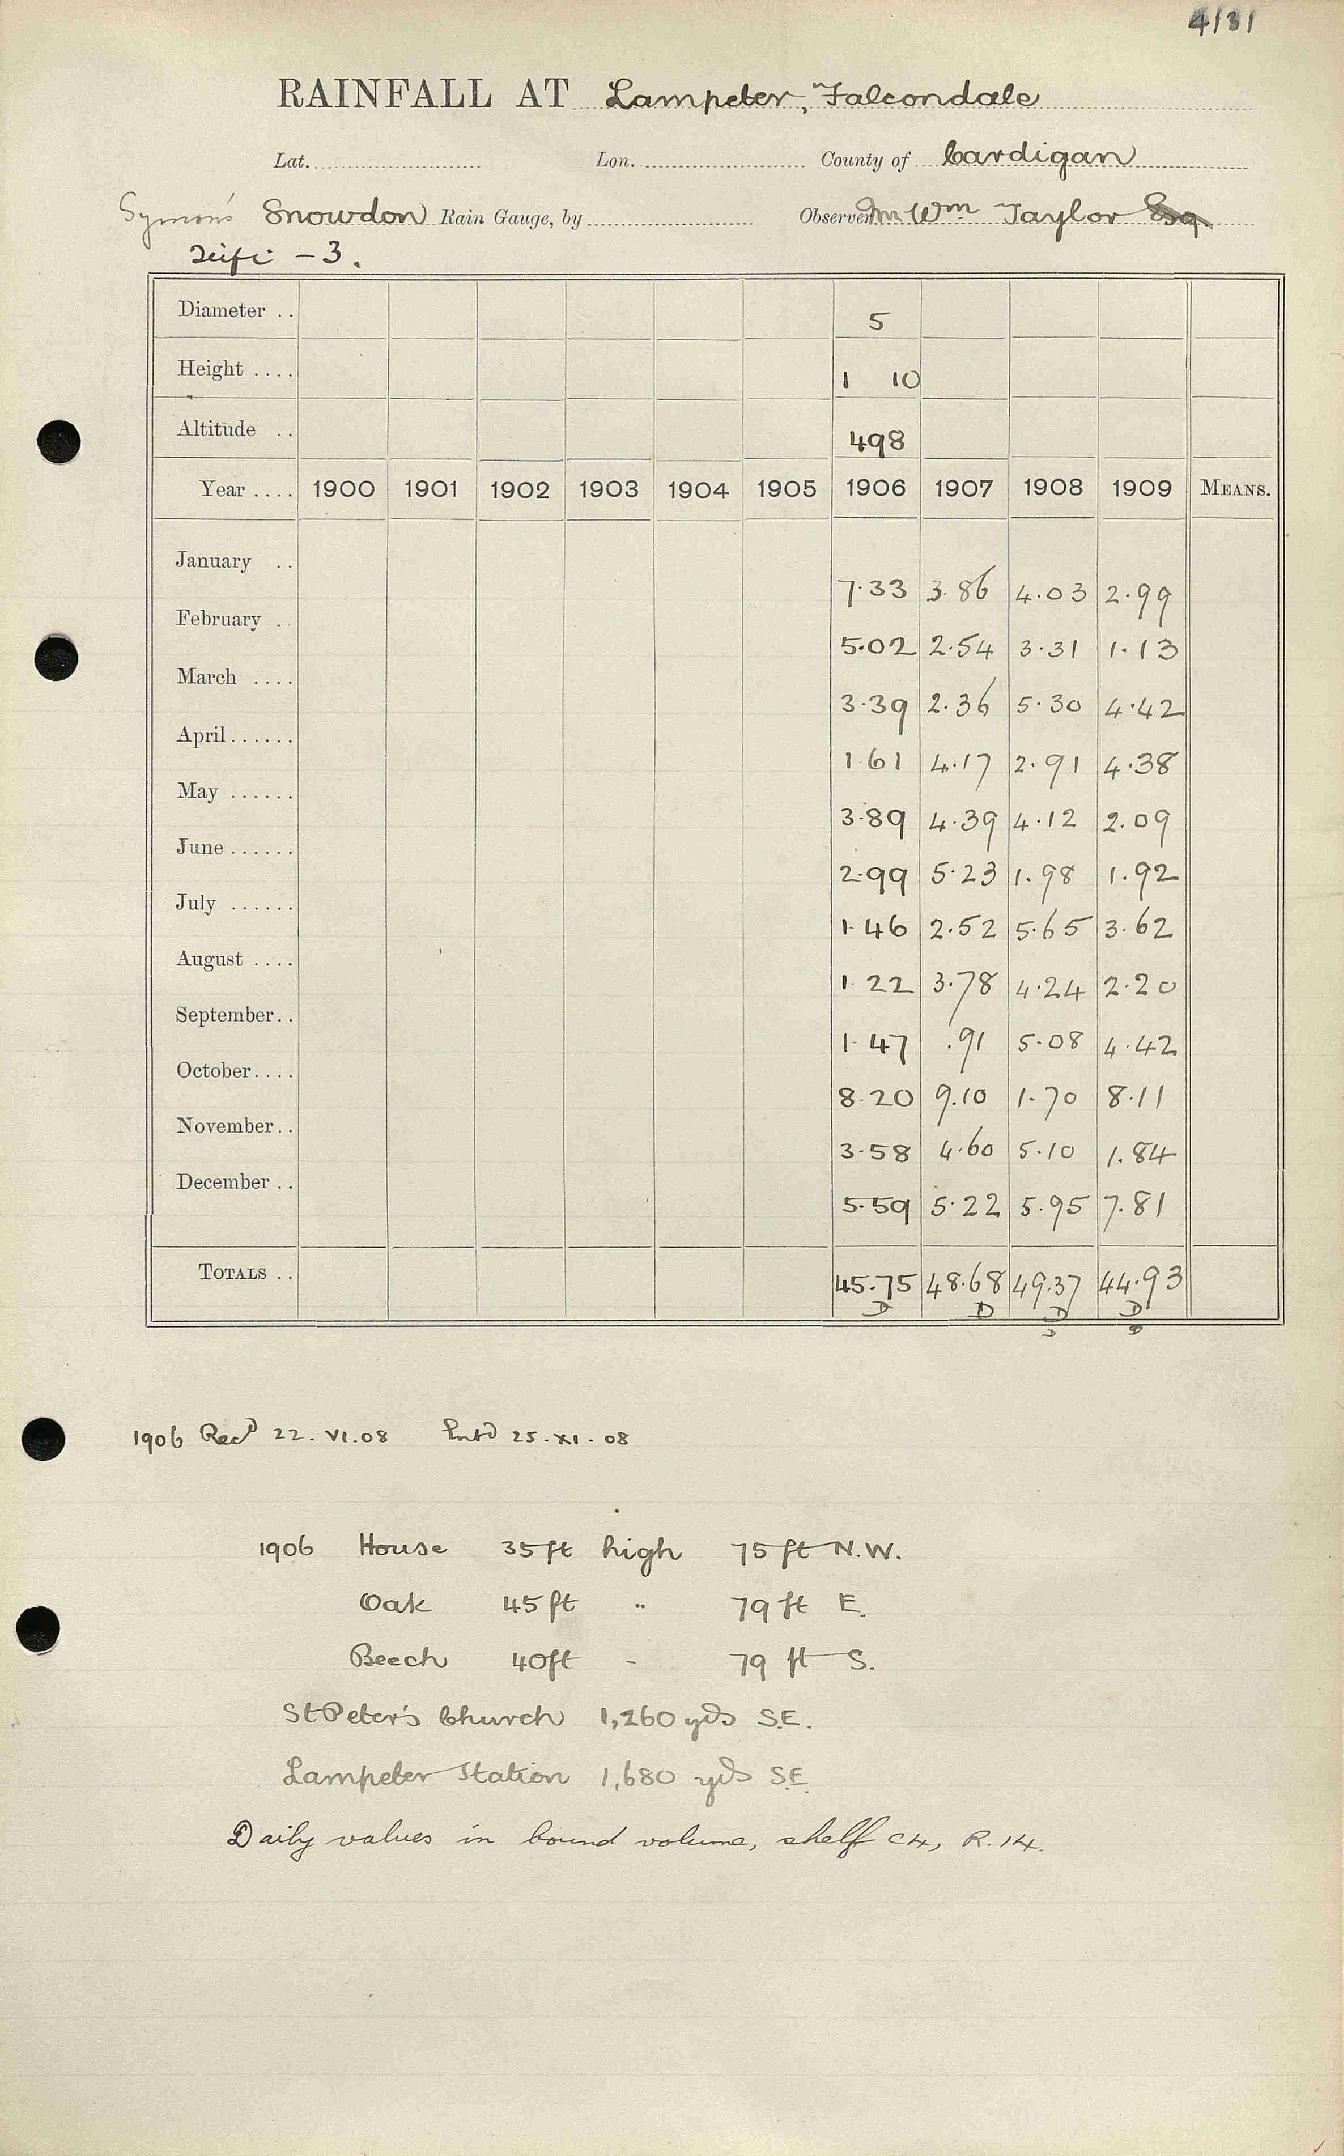 4131
RAINFALL AT Lampeter, Falcondale
Lat. Lon. County of Cardigan
Symon's Snowdon Rain Gauge, by Observer Mr Wm Taylor Esq.
Teifi - 3.
Diameter .. 5
Height .... 1 10
Altitude .. 498
Year .... 1900 1901 1902 1903 1904 1905 1906 1907 1908 1909 MEANS.
January .. 7.33 3.86 4.03 2.99
February .. 5.02 2.54 3.31 1.13
March .... 3.39 2.36 5.30 4.42
April...... 1.61 4.17 2.91 4.38
May ...... 3.89 4.39 4.12 2.09
June...... 2.99 5.23 1.98 1.92
July ...... 1.46 2.52 5.65 3.62
August .... 1.22 3.78 4.24 2.20
September.. 1.47 .91 5.08 4.42
October.... 8.20 9.10 1.70 8.11
November.. 3.58 4.60 5.10 1.84
December .. 5.59 5.22 5.95 7.81
TOTALS .. 45.75 48.68 49.37 44.93
D D D D
1906 Recd 22. VI.08 Entd 25.XI.08
1906 House 35ft high 75ft N.W.
Oak 45ft " 79ft E.
Beech 40ft " 79 ft S.
St Peter's Church 1,260 yds S.E.
Lampeter Station 1,680 yds S.E.
Daily values in bound volume, shelf C4, R.14.